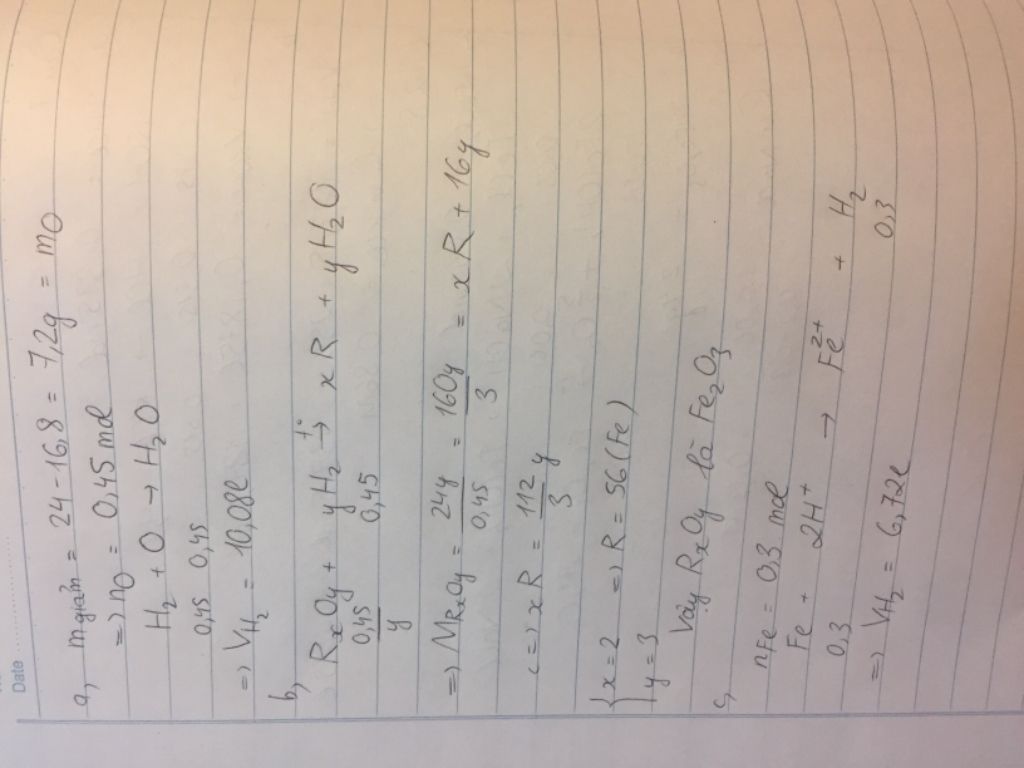 Date
a, m giảm = 24 - 16,8 = 7,2g = mO
=> nO = 0,45 mol
H2 + O → H2O
0,45 0,45
=> VH2 = 10,08l
b,
RxOy + yH2 →t° xR + yH2O
0,45/y 0,45
=> MRxOy = 24y/0,45 = 160y/3 = xR + 16y
<=> xR = 112/3 y
{x=2
y=3 => R = 56 (Fe)
Vậy RxOy là Fe2O3
c,
nFe = 0,3 mol
Fe + 2H+ → Fe2+ + H2
0,3 0,3
=> VH2 = 6,72l